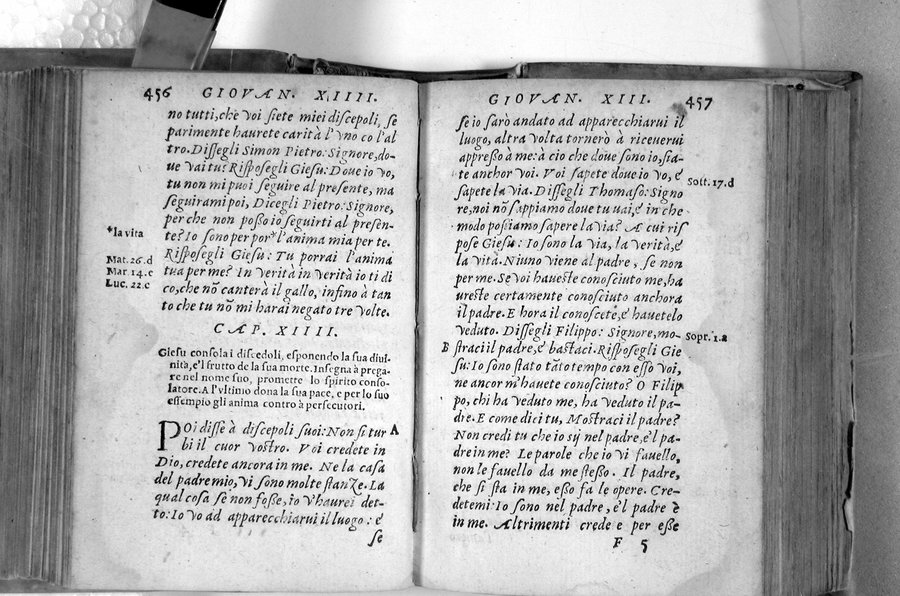 456 GIOVAN. XIIII.
no tutti, che voi siete miei discepoli, se
parimente haurete carità l'vno co l'al
tro. Dissegli Simon Pietro: Signore, do-
ue vai tu? Rispose gli Giesu: Doue io vo,
tu non mi puoi seguire al presente, ma
seguirami poi, Dicegli Pietro: Signore,
per che non posso io seguirti al presen-
te? Io sono per por* l'anima mia per te.
*la vita
Risposegli Giesu: Tu porrai l'anima
Mat. 26.d
tua per me? In verità in verità io ti di
Mar. 14.c
co, che nõ canterà il gallo, infino à tan
Luc. 22.c
to che tu nõ mi harai negato tre volte.
CAP. XIIII.
Giesu consola i discedoli, esponendo la sua diui-
nità, e'l frutto de la sua morte. Insegna à prega-
re nel nome suo, promette lo spirito conso-
latore. A l'vltimo dona la sua pace, e per lo suo
essempio gli anima contro à persecutori.
POi disse à discepoli suoi: Non si tur A
bi il cuor vostro. Voi credete in
Dio, credete ancora in me. Ne la casa
del padre mio, vi sono molte stanze. La
qual cosa se non fosse, io v'haurei det-
to: Io vo ad apparecchiarui il luogo: é
se
GIOVAN. XIII. 457
se io sarò andato ad apparecchiarui il
luogo, altra volta tornerò à riceuerui
appresso à me: à cio che doue sono io, sia-
te anchor voi. Voi sapete doue io vo, é
Sott. 17.d
sapete la via. Dissegli Thomaso: Signo
re, noi nõ sappiamo doue tu vai, é in che
modo possiamo sapere la via? A cui ris
pose Giesu: Io sono la via, la verità, é
la vità. Niuno viene al padre, se non
per me. Se voi haueste conosciuto me, ha
ureste certamente conosciuto anchora
il padre. E hora il conoscete, é hauetelo
veduto. Dissegli Filippo: Signore, mo-
Sopr. 1.a
B straci il padre, é bastaci. Risposegli Gie
su: Io sono stato tãto tempo con esso voi,
ne ancor m'hauete conosciuto? O Filip
po, chi ha veduto me, ha veduto il pa-
dre. E come dici tu, Mostraci il padre?
Non credi tu che io sÿ nel padre, é'l pa-
dre in me? Le parole che io vi fauello,
non le fauello da me stesso. Il padre,
che si sta in me, esso fa le opere. Cre-
detemi: Io sono nel padre, é'l padre è
in me. Altrimenti crede e per esse
F 5